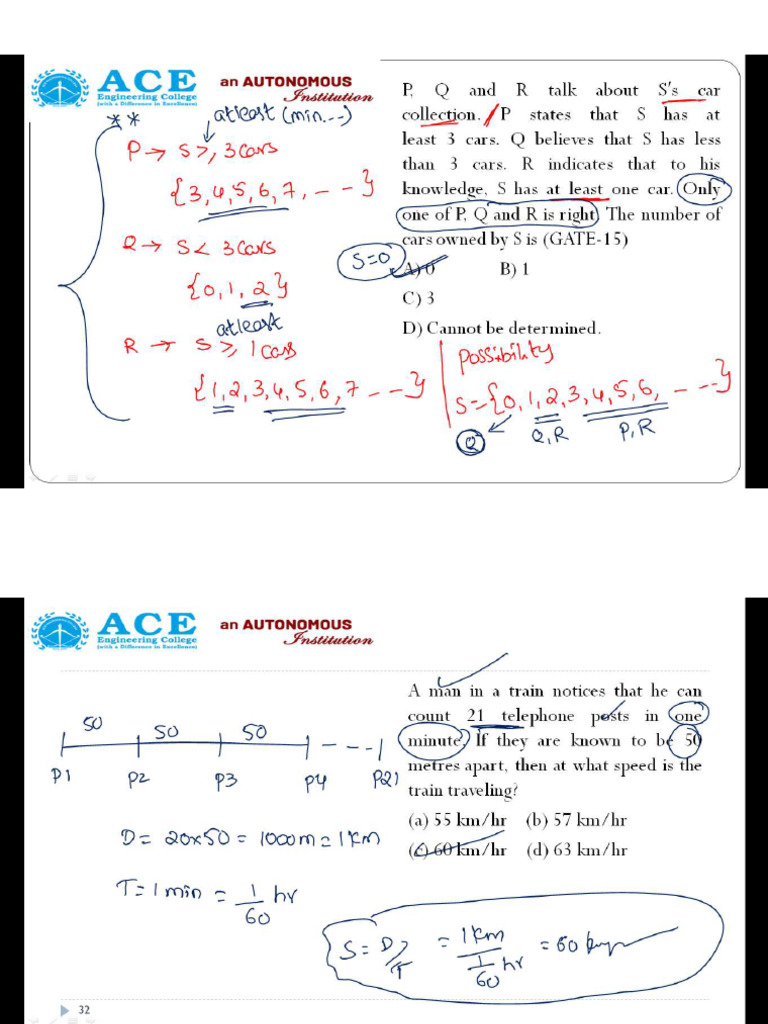 ACE
Engineering College
(with a Difference in Excellence)
an AUTONOMOUS
Institution
**
atleast (min...)
P → S ≥, 3 cars
{3, 4, 5, 6, 7, - - -}
Q → S < 3 cars
{0, 1, 2}
atleast
R → S ≥, 1 cars
{1, 2, 3, 4, 5, 6, 7 - - -}
P, Q and R talk about S's car
collection. P states that S has at
least 3 cars. Q believes that S has less
than 3 cars. R indicates that to his
knowledge, S has at least one car. Only
one of P, Q and R is right. The number of
cars owned by S is (GATE-15)
S=0
A) 0 B) 1
C) 3
D) Cannot be determined.
possibility
S = {0, 1, 2, 3, 4, 5, 6, - - -}
Q
Q, R
P, R
ACE
Engineering College
(with a Difference in Excellence)
an AUTONOMOUS
Institution
50 50 50
P1 P2 P3 P4 - - - P21
D = 20x50 = 1000m = 1 KM
T = 1 min = 1/60 hr
A man in a train notices that he can
count 21 telephone posts in one
minute. If they are known to be 50
metres apart, then at what speed is the
train traveling?
(a) 55 km/hr (b) 57 km/hr
(c) 60 km/hr (d) 63 km/hr
S = D/T = 1 KM / 1/60 hr = 60
32